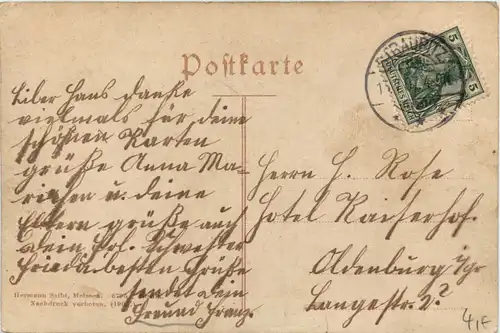 Postkarte
Lieber Hans danke
vielmals für deine
schönen Karten
grüße Anna Ma-
riechen u. deine
Eltern grüße auch
Dein Schwester
Frieda besten Grüße
sendet Dein
Freund Franz.
STRAUPITZ
5
5
Herrn H. Rose
Hotel Kaiserhof.
Oldenburg i/Gr
Langestr.
Hermann Seibt, Meissen.
Nachdruck verboten.
4,-F